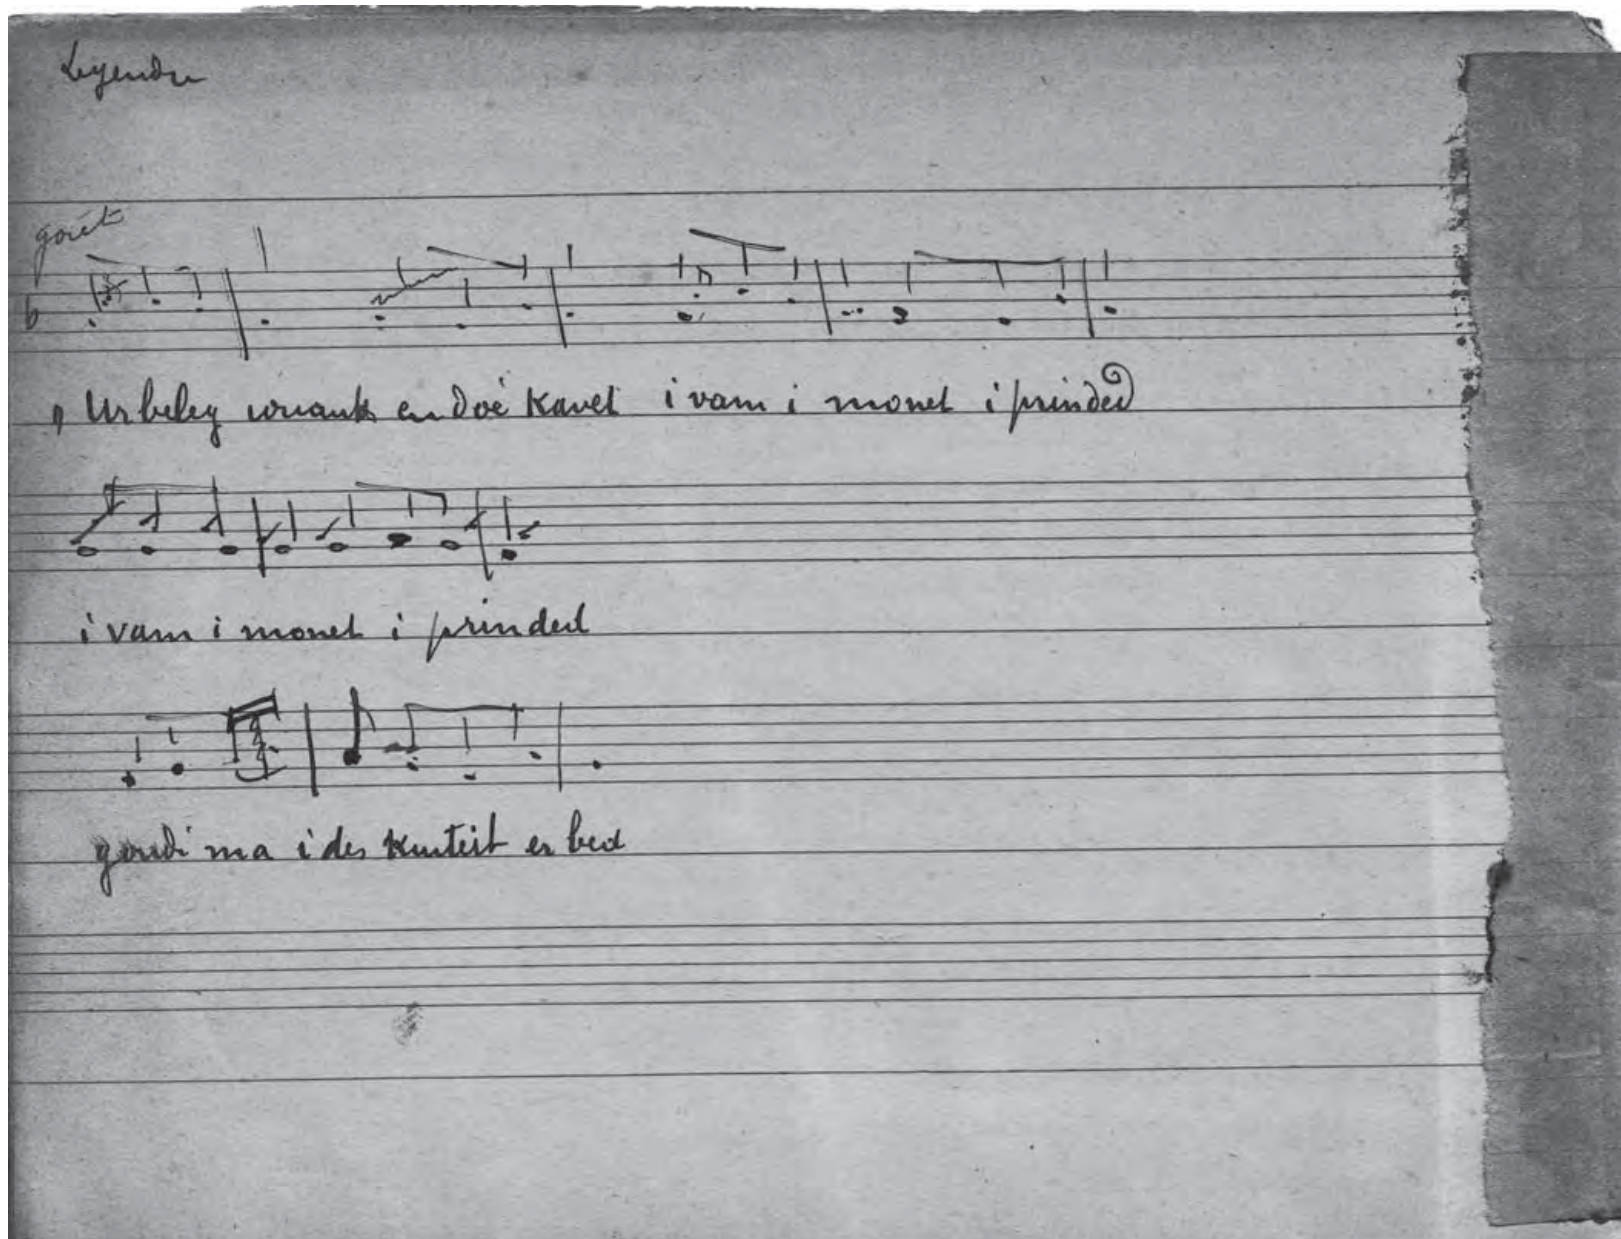 Legendre
gouët
Ur beleg iouank en doé kavet i vam i monet i prinded
i vam i monet i prinded
goudi ma i des kuteit er bed